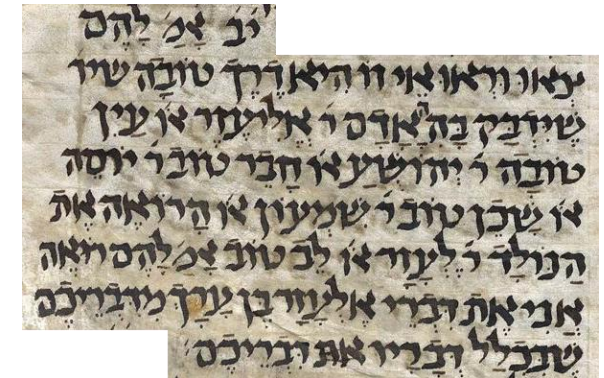 יב אמ' להם
צאו וראו אי זו היא דרך טובה שיד
שידבק בה האדם ר' אליעזר או' עין
טובה ר' יהושע או' חבר טוב ר' יוסה
או' שכן טוב ר' שמעון או' הרואה את
הנולד ר' לעזר או' לב טוב אמ' להם רואה
אני את דברי אלעזר בן ערך מדבריכם
שבכלל דבריו את דבריכם